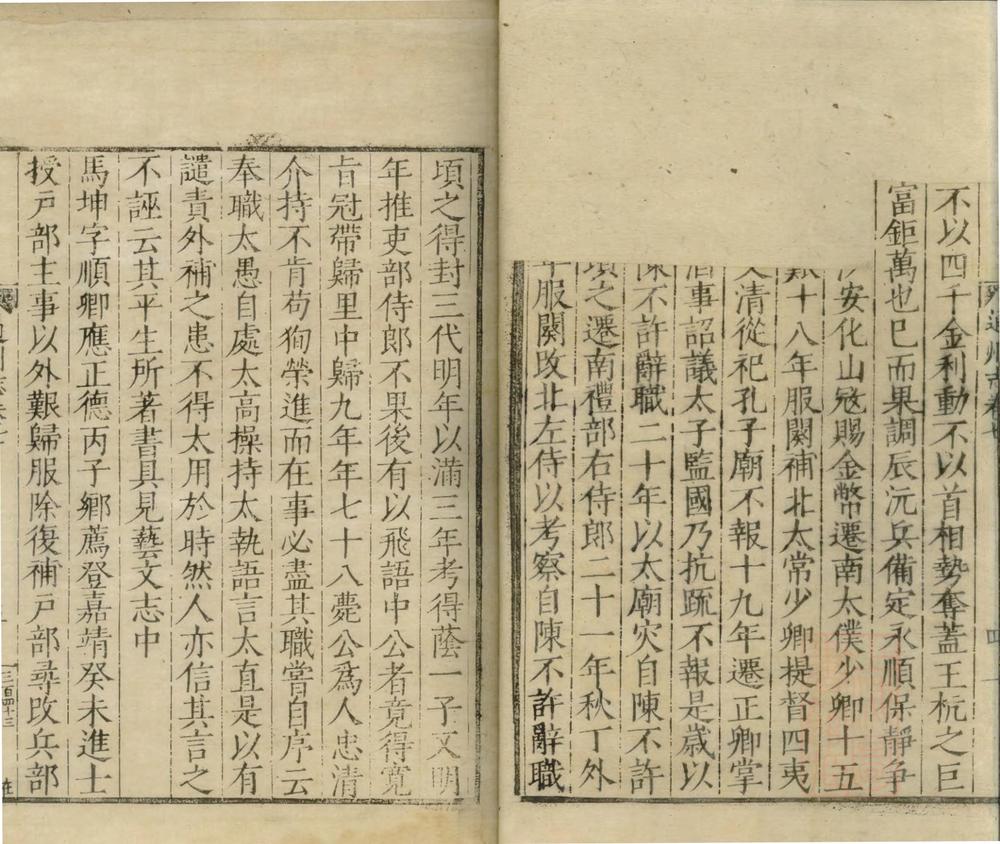 不以四千金利動不以首相勢奪蓋王杬之巨
富鉅萬也已而果調辰沅兵備定永順保靜爭
安化山寇賜金幣遷南太僕少卿十五
艱十八年服闋補北太常少卿提督四夷
清從祀孔子廟不報十九年遷正卿掌
事詔議太子監國乃抗疏不報是歲以
陳不許辭職二十年以太廟灾自陳不許
頃之遷南禮部右侍郎二十一年秋丁外
年服闋改北左侍以考察自陳不許辭職
頃之得封三代明年以滿三年考得蔭一子又明
年推吏部侍郎不果後有以飛語中公者竟得寬
旨冠帶歸里中歸九年年七十八薨公爲人忠清
介持不肯苟狥榮進而在事必盡其職嘗自序云
奉職太愚自處太高操持太執語言太直是以有
譴責外補之患不得太用於時然人亦信其言之
不誣云其平生所著書具見藝文志中
馬坤字順卿應正德丙子鄉薦登嘉靖癸未進士
授戸部主事以外艱歸服除復補戸部尋改兵部
三百四十三